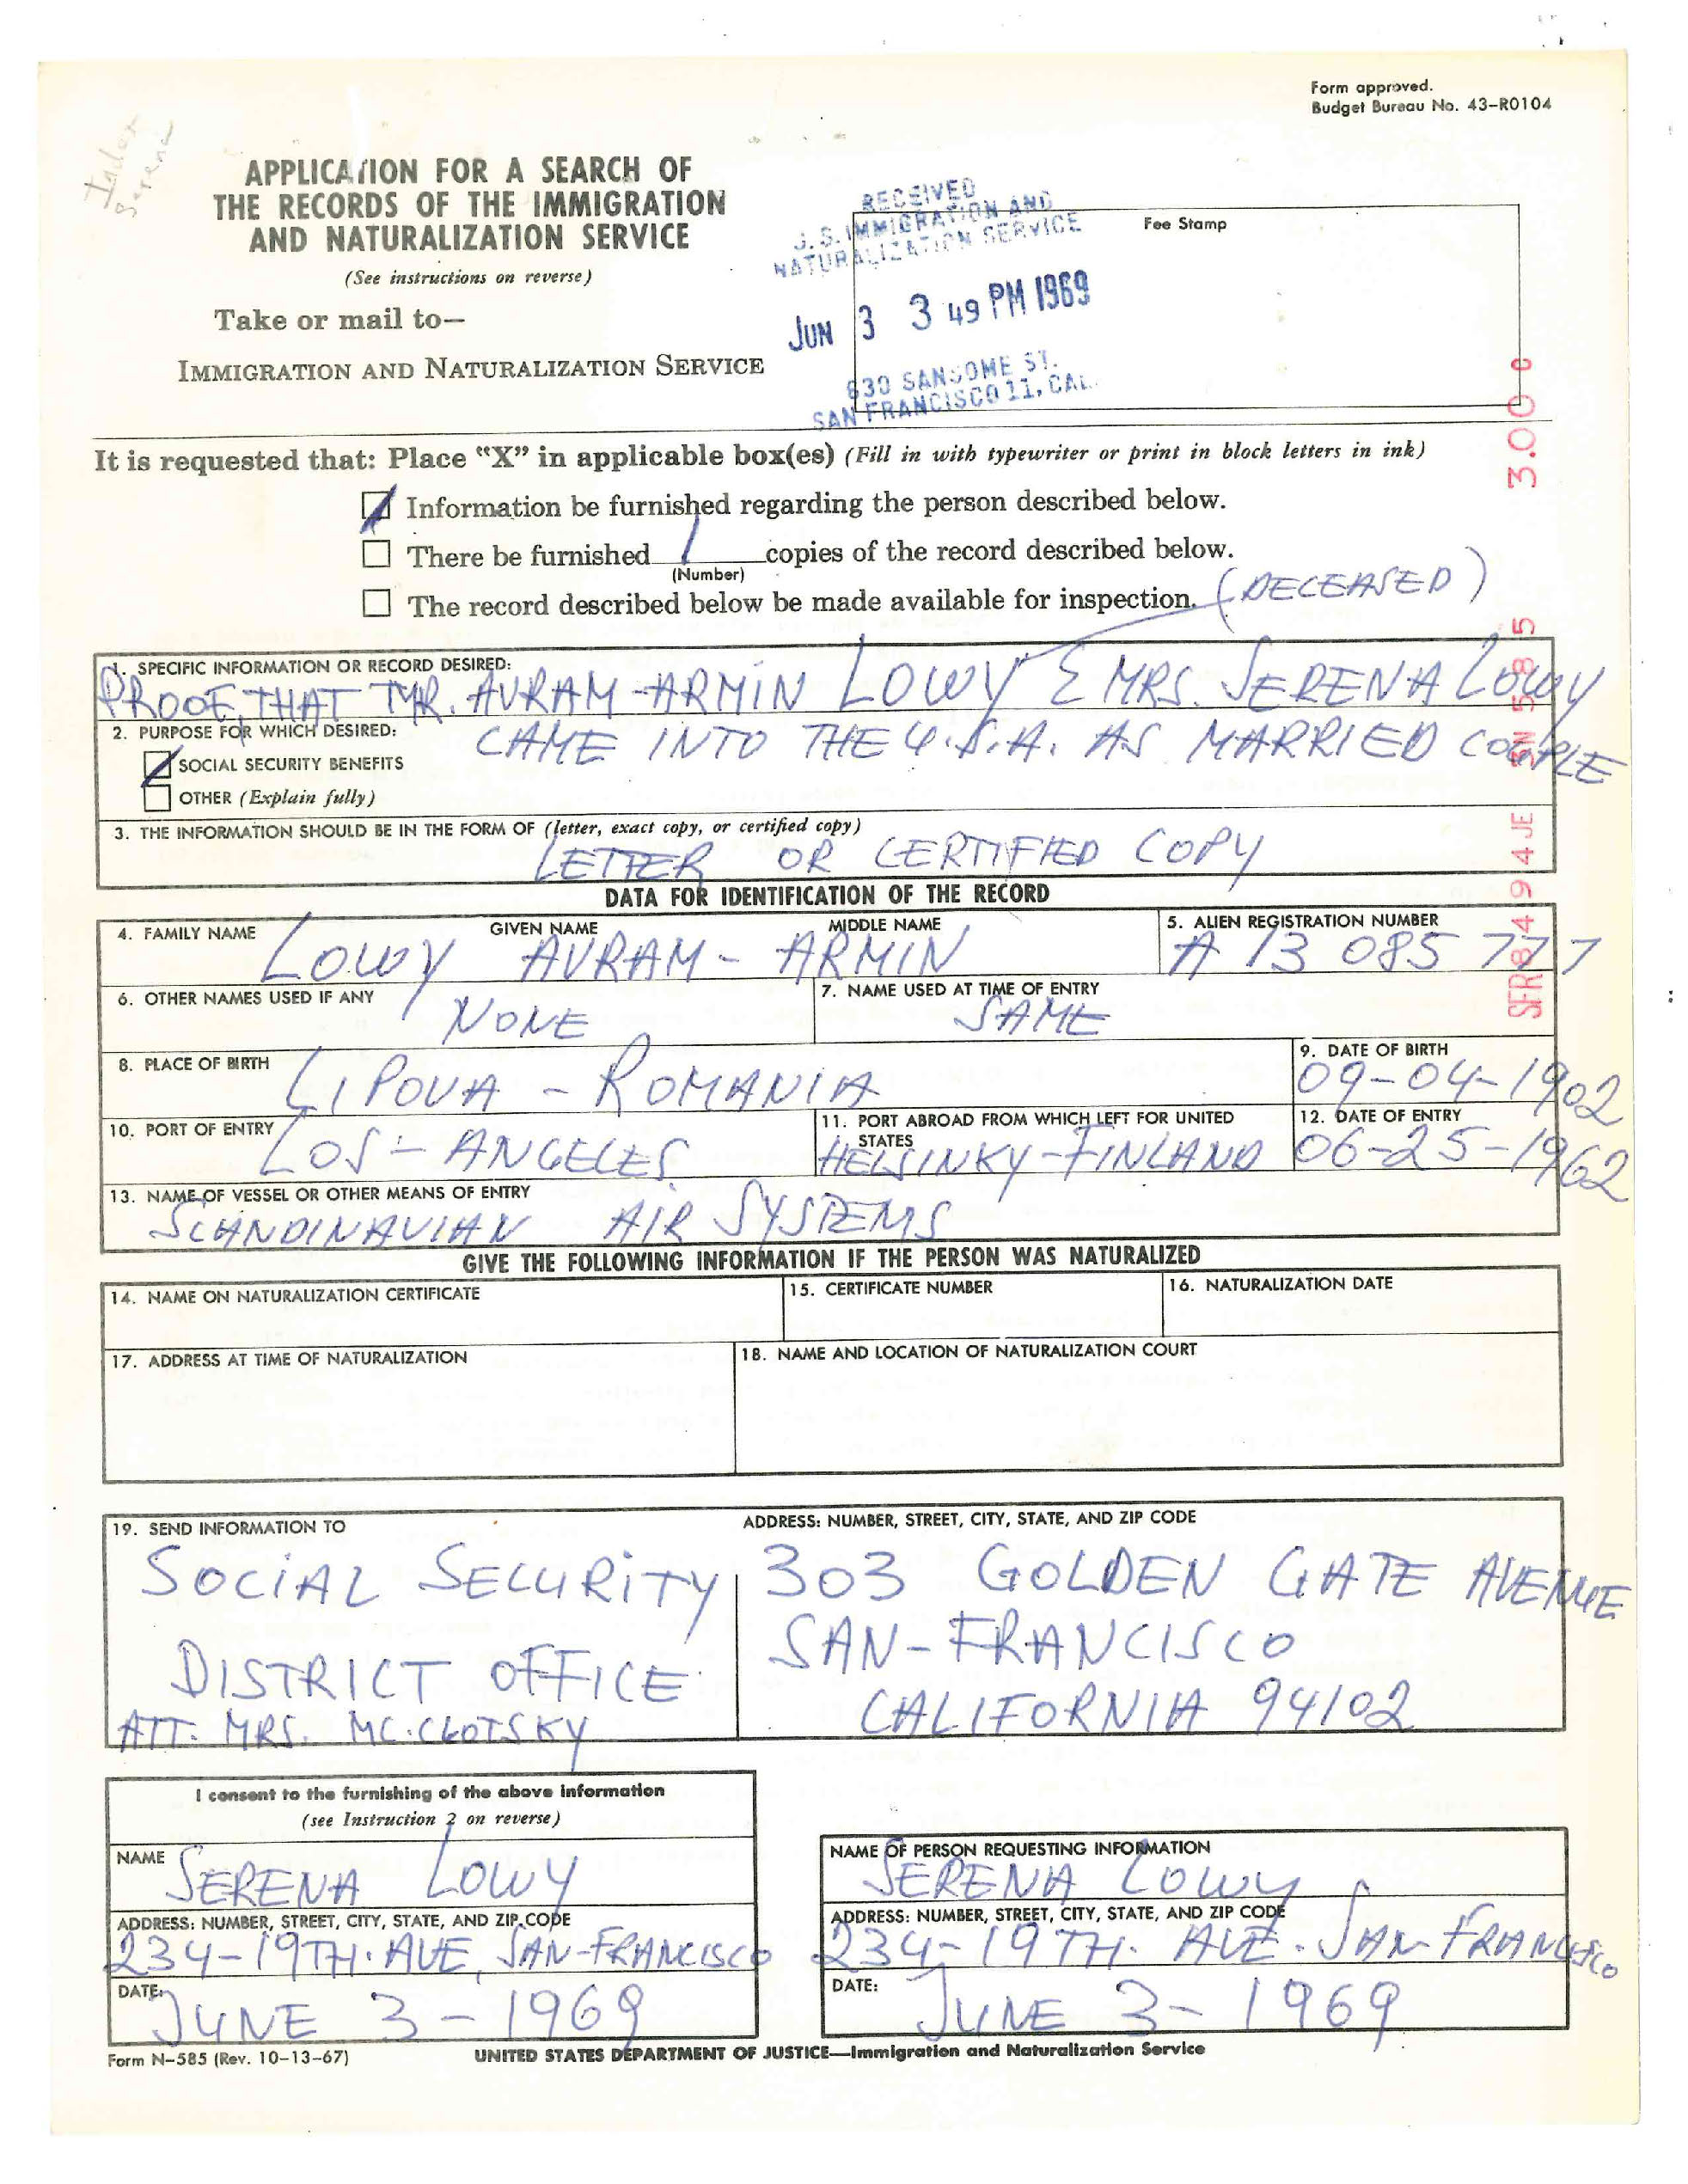 Form approved.
Budget Bureau No. 43-R0104
Index
Serena
APPLICATION FOR A SEARCH OF
THE RECORDS OF THE IMMIGRATION
AND NATURALIZATION SERVICE
(See instructions on reverse)
Take or mail to—
IMMIGRATION AND NATURALIZATION SERVICE
RECEIVED
U. S. IMMIGRATION AND
NATURALIZATION SERVICE
JUN 3 3 49 PM 1969
630 SANSOME ST.
SAN FRANCISCO 11, CAL.
Fee Stamp
It is requested that: Place "X" in applicable box(es) (Fill in with typewriter or print in block letters in ink)
Information be furnished regarding the person described below.
There be furnished 1 copies of the record described below.
(Number)
The record described below be made available for inspection.
(DECEASED)
1. SPECIFIC INFORMATION OR RECORD DESIRED:
PROOF, THAT MR. AVRAM-ARMIN LOWY & MRS. SERENA LOWY
CAME INTO THE U.S.A. AS MARRIED COUPLE
2. PURPOSE FOR WHICH DESIRED:
SOCIAL SECURITY BENEFITS
OTHER (Explain fully)
3. THE INFORMATION SHOULD BE IN THE FORM OF (letter, exact copy, or certified copy)
LETTER OR CERTIFIED COPY
SFR 8 4 9 4 JE 5N 5 8 5 3.00
DATA FOR IDENTIFICATION OF THE RECORD
4. FAMILY NAME GIVEN NAME MIDDLE NAME
LOWY AVRAM - ARMIN
5. ALIEN REGISTRATION NUMBER
A 13 085 777
6. OTHER NAMES USED IF ANY
NONE
7. NAME USED AT TIME OF ENTRY
SAME
8. PLACE OF BIRTH
LIPOVA - ROMANIA
9. DATE OF BIRTH
09-04-1902
10. PORT OF ENTRY
LOS - ANGELES
11. PORT ABROAD FROM WHICH LEFT FOR UNITED
STATES
HELSINKY-FINLAND
12. DATE OF ENTRY
06-25-1962
13. NAME OF VESSEL OR OTHER MEANS OF ENTRY
SCANDINAVIAN AIR SYSTEMS
GIVE THE FOLLOWING INFORMATION IF THE PERSON WAS NATURALIZED
14. NAME ON NATURALIZATION CERTIFICATE
15. CERTIFICATE NUMBER
16. NATURALIZATION DATE
17. ADDRESS AT TIME OF NATURALIZATION
18. NAME AND LOCATION OF NATURALIZATION COURT
19. SEND INFORMATION TO
SOCIAL SECURITY
DISTRICT OFFICE
ATT. MRS. MC.CLOTSKY
ADDRESS: NUMBER, STREET, CITY, STATE, AND ZIP CODE
303 GOLDEN GATE AVENUE
SAN-FRANCISCO
CALIFORNIA 94102
I consent to the furnishing of the above information
(see Instruction 2 on reverse)
NAME
SERENA LOWY
ADDRESS: NUMBER, STREET, CITY, STATE, AND ZIP CODE
234-19TH. AVE, SAN-FRANCISCO
DATE:
JUNE 3-1969
NAME OF PERSON REQUESTING INFORMATION
SERENA LOWY
ADDRESS: NUMBER, STREET, CITY, STATE, AND ZIP CODE
234-19TH. AVE. SAN-FRANCISCO
DATE:
JUNE 3-1969
Form N-585 (Rev. 10-13-67)
UNITED STATES DEPARTMENT OF JUSTICE—Immigration and Naturalization Service